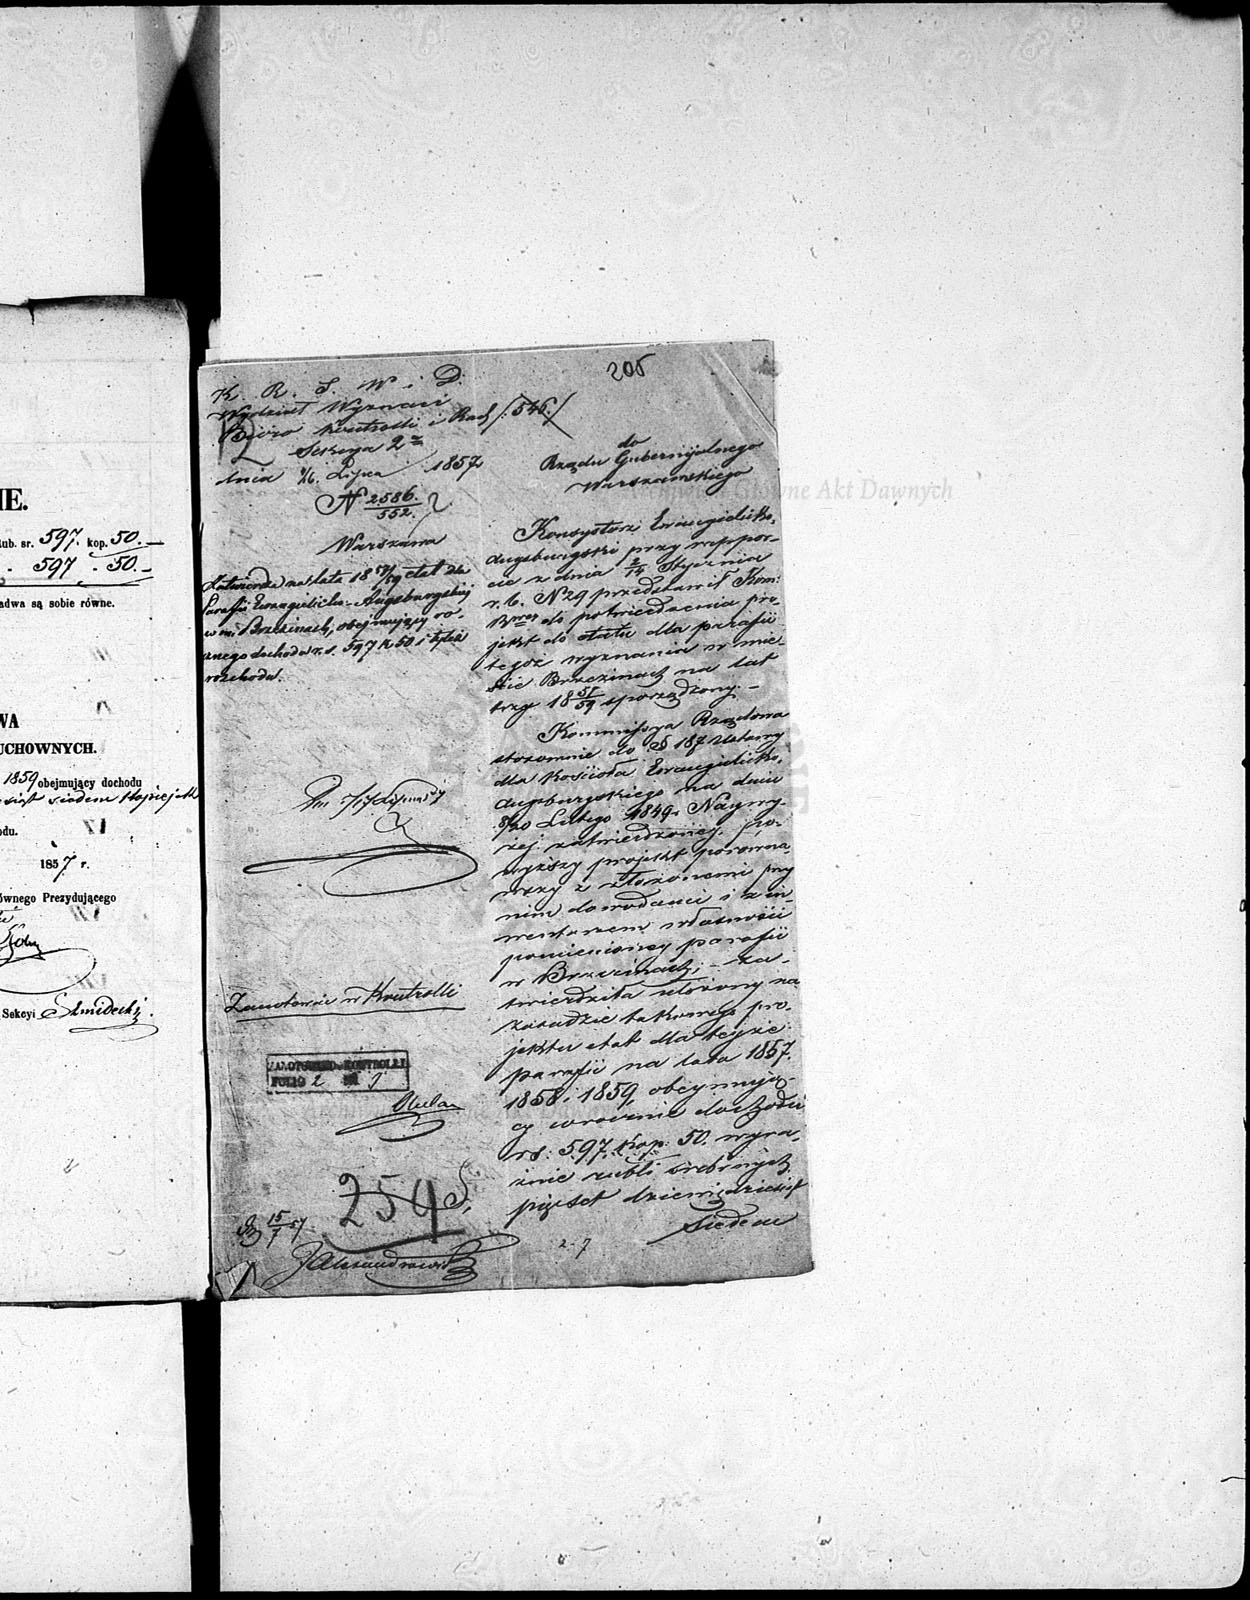 IE.
rub. sr. 597. kop. 50.
597 . 50.
adwa są sobie równe.
WA
UCHOWNYCH.
1859 obejmujący dochodu
siąt siedem kopiejek
odu.
1857 r.
ównego Prezydującego
Sekcyi
205
K. R. S. W. i D.
Wydział Wyznań
Biuro Kontrolli i Rach /:546./
Sekcya 2
dnia 4/16. Lipca 1857
N 2586./552.
Warszawa
Zatwierdza na lata 18 57/59 etat dla
Parafii Ewangielicko-Augsburgskiej
w m. Brzezinach, obejmujący ro-
cznego dochodu r.s. 597 k 50 i tyleż
rozchodu.
Zanotować w Kontrolli
ZANOTOWANO w KONTROLLI
FOLIO 2 N 9
259
15/7 57
do
Rządu Gubernijalnego
Warszawskiego
Konsystorz Ewangielicko-
Augsburgski przy rappor-
cie z dnia 2/14 Stycznia
r. b. N 29 przedstawił Kom:
do potwierdzenia pro-
jekt do etatu dla parafii
tegoż wyznania w mie-
ście Brzezinach na lat
trzy 18 57/59 sporządzony. -
Kommissya Rządowa
stosownie do § 187 Ustawy
dla Kościoła Ewangielicko-
Augsburgskiego na dniu
8/20 Lutego 1849 r. Najwy-
żej zatwierdzonej, po-
wyższy projekt porówna-
wszy z złożonemi przy
nim dowodami i z in-
wentarzem własności
pomienionej parafii
w Brzezinach, - za-
twierdziła ułożony na
zasadzie takowego pro-
jektu etat dla tejże
parafii na lata 1857.
1858 i 1859, obejmują-
cy corocznie dochodu
rs: 597. kop. 50. wyra-
źnie rubli srebrnych
pięćset dziewięćdziesiąt
siedem
2-7
Archiwum Główne Akt Dawnych